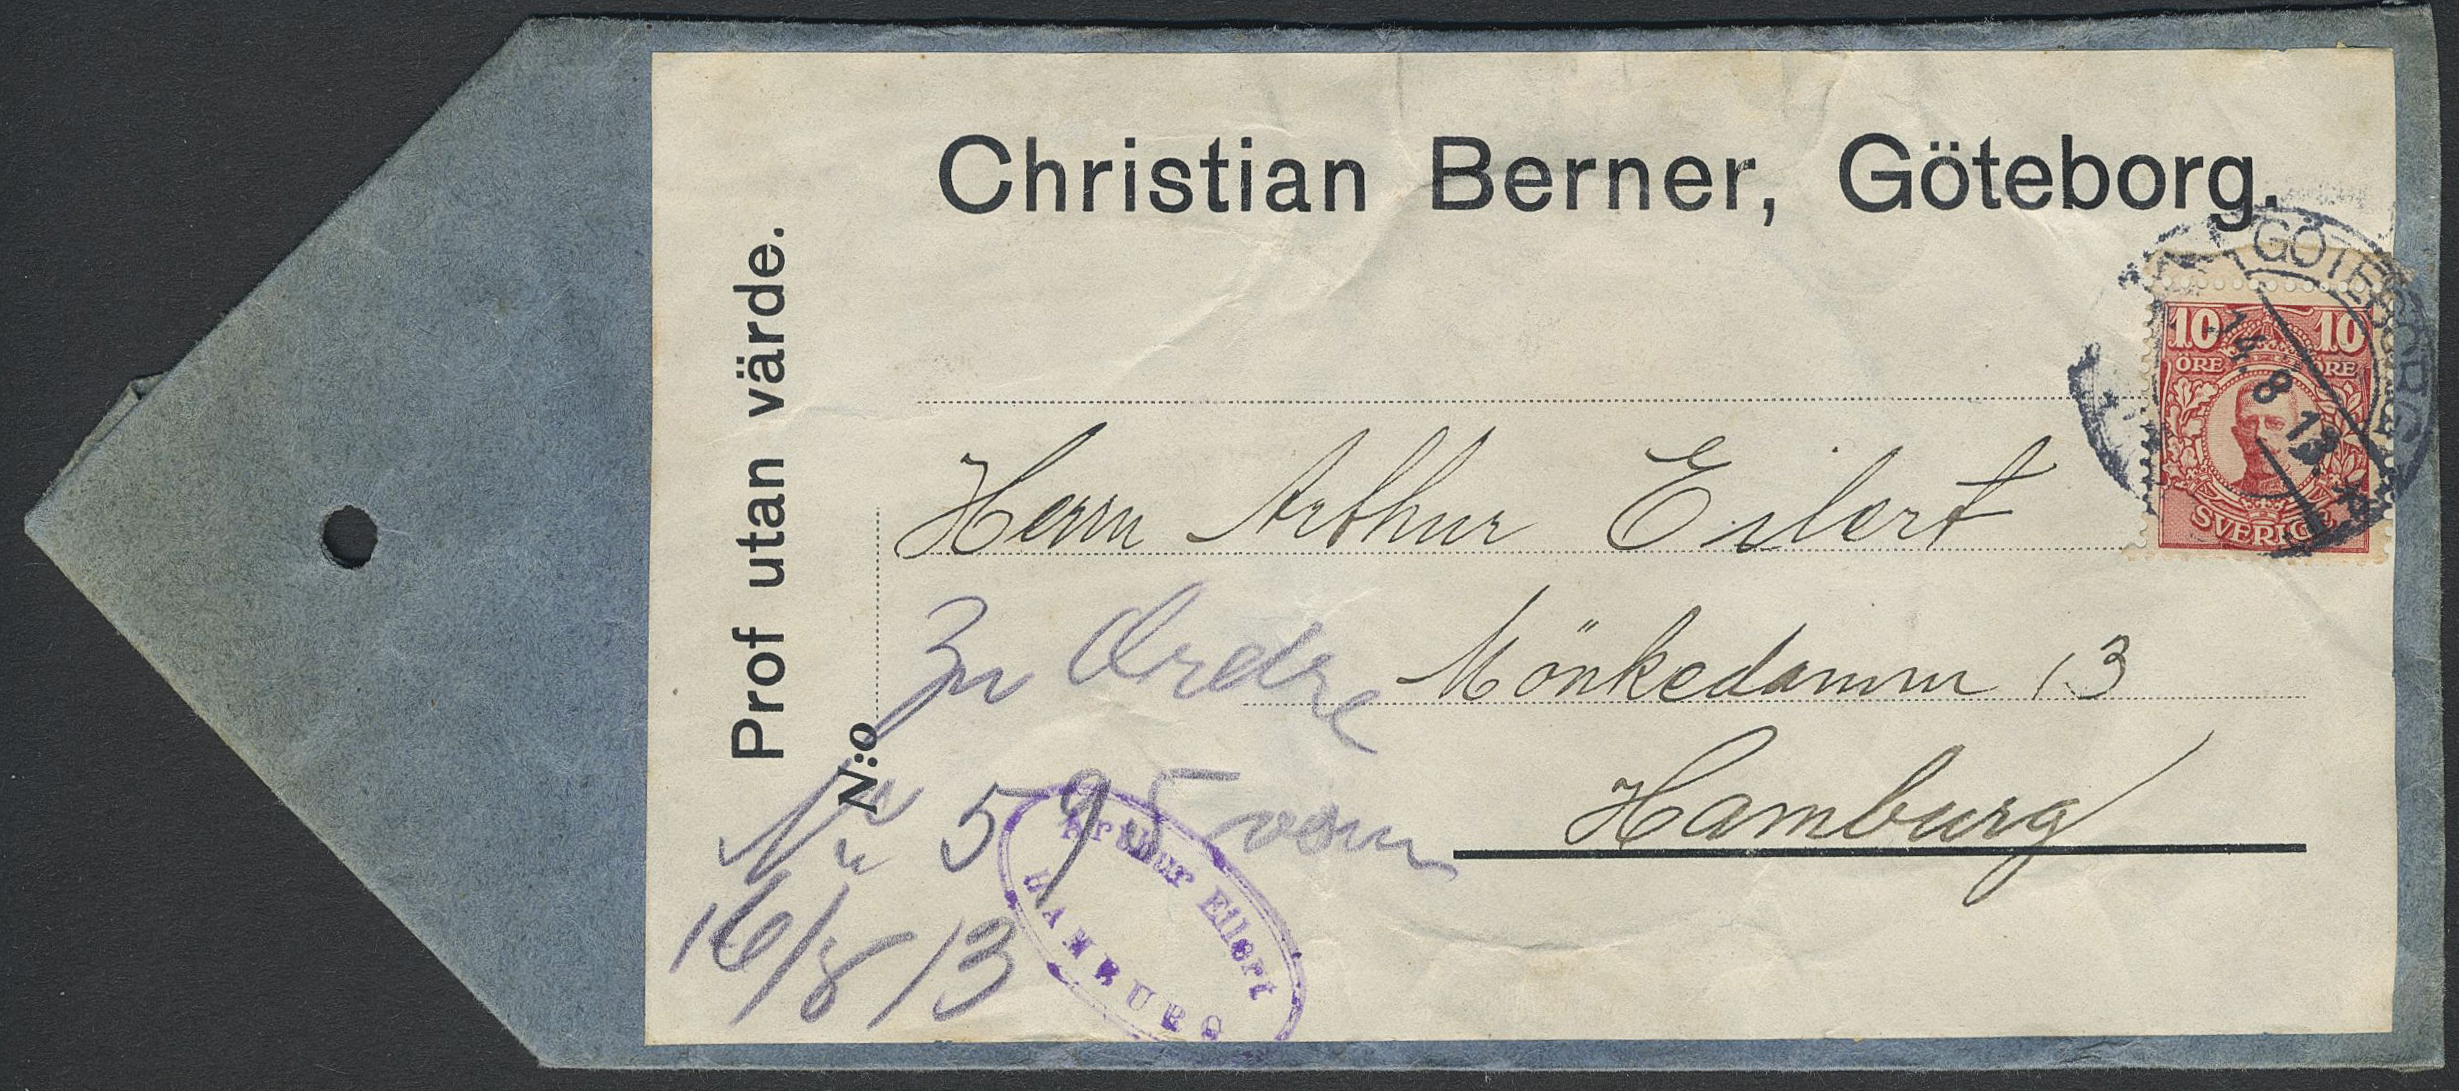 Christian Berner, Göteborg.
Prof utan värde.
N:o
GÖTEBORG
14. 8 13
10 10
ÖRE ÖRE
SVERIGE
Herrn Arthur Eilert
Mönkedamm 13
Hamburg
Zu Ordre
Nr 595 vom
16/8 13
Arthur Eilert
HAMBURG